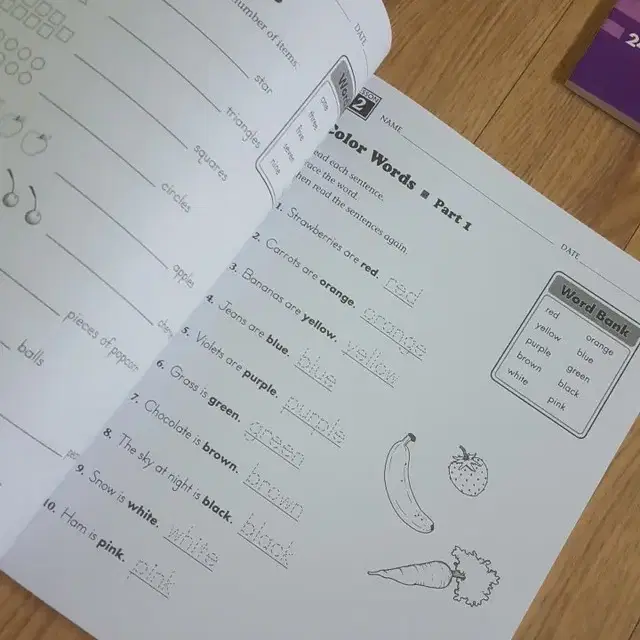 number of items.
DATE
star
triangles
squares
circles
apples
pieces of popcorn
balls
2
NAME
Color Words ■ Part 1
Read each sentence.
Trace the word.
Then read the sentences again.
1. Strawberries are red. red
2. Carrots are orange. orange
3. Bananas are yellow. yellow
4. Jeans are blue. blue
5. Violets are purple. purple
6. Grass is green. green
7. Chocolate is brown. brown
8. The sky at night is black. black
9. Snow is white. white
10. Ham is pink. pink
DATE
Word Bank
red orange
yellow blue
purple green
brown black
white pink